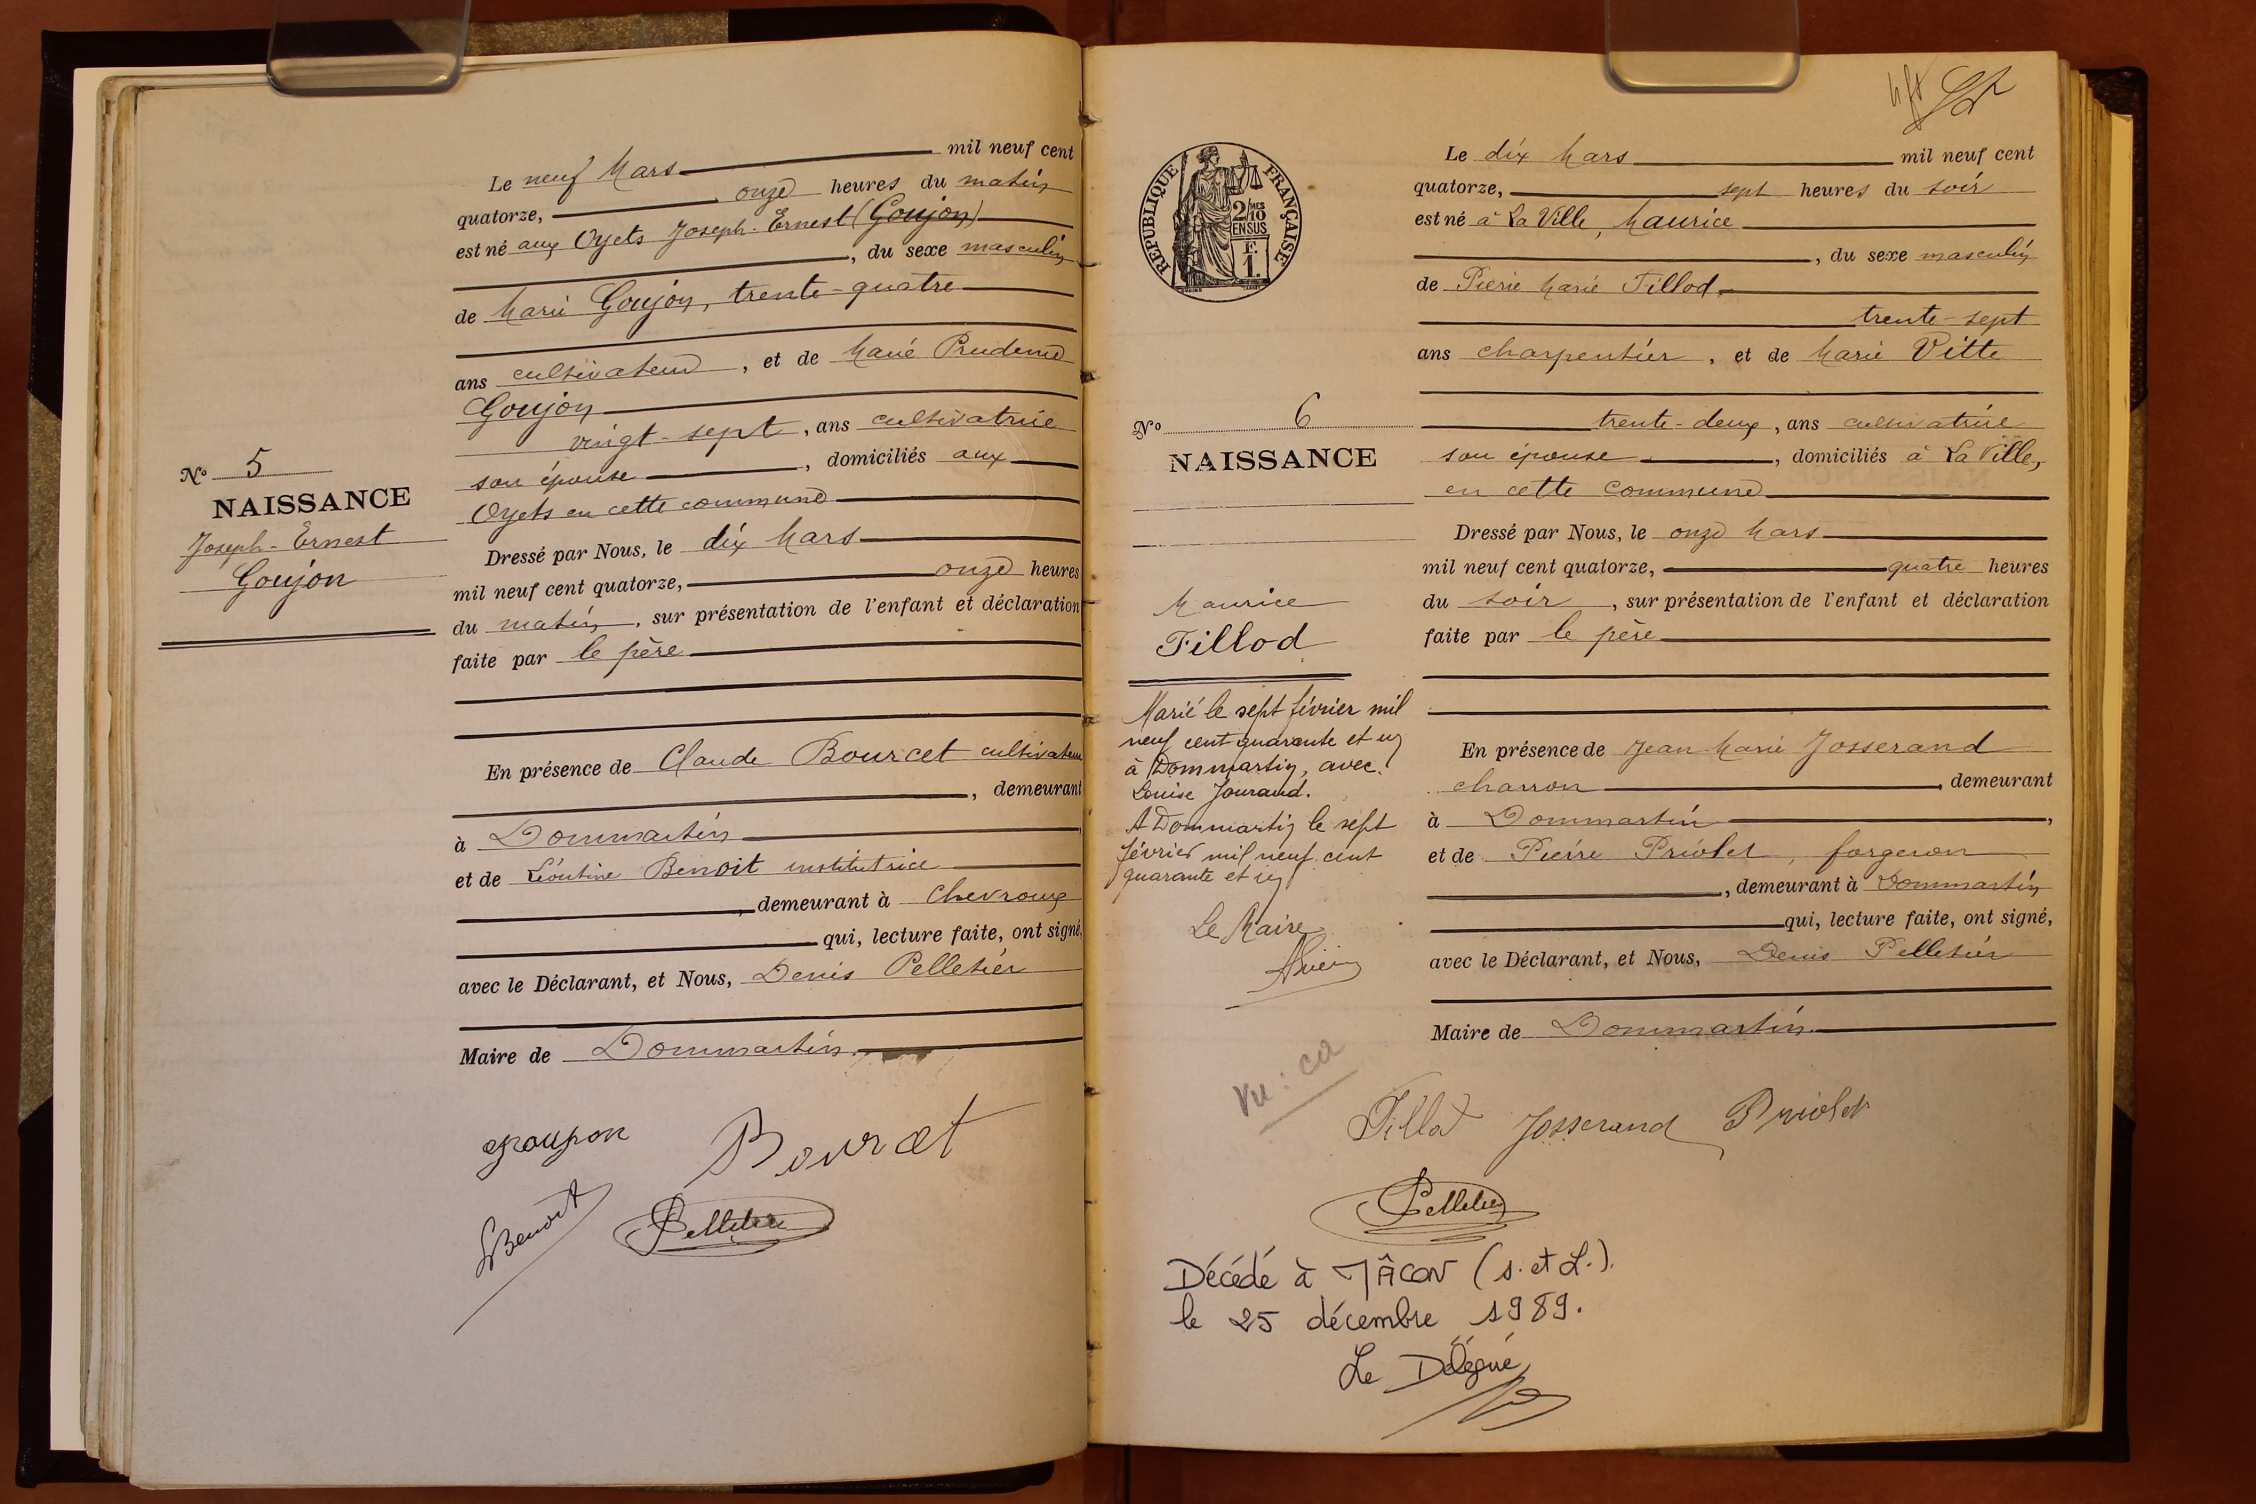 Le neuf Mars mil neuf cent
quatorze, onze heures du matin
est né aux Oyets Joseph-Ernest (Goujon)
, du sexe masculin
de Marie Goujon, trente-quatre
ans cultivateur, et de Marie Prudence
Goujon
vingt-sept, ans cultivatrice
son épouse, domiciliés aux
Oyets en cette commune
Dressé par Nous, le dix Mars
mil neuf cent quatorze, onze heures
du matin, sur présentation de l'enfant et déclaration
faite par le père
En présence de Claude Bourcet cultivateur
, demeurant
à Dommartin
et de Léontine Benoit institutrice
, demeurant à Chevroux
qui, lecture faite, ont signé,
avec le Déclarant, et Nous, Denis Pelletier
Maire de Dommartin
N° 5
NAISSANCE
Joseph-Ernest
Goujon
goujon
Bourcet
LBenoit
Pelletier
RÉPUBLIQUE FRANÇAISE
2/MES
10
EN SUS
F.
1.
Le dix Mars mil neuf cent
quatorze, sept heures du soir
est né à La Ville, Maurice
, du sexe masculin
de Pierre Marie Fillod
trente-sept
ans charpentier, et de Marie Vitte
trente-deux, ans cultivatrice
son épouse, domiciliés à La Ville,
en cette commune
Dressé par Nous, le onze Mars
mil neuf cent quatorze, quatre heures
du soir, sur présentation de l'enfant et déclaration
faite par le père
En présence de Jean-Marie Josserand
charron, demeurant
à Dommartin,
et de Pierre Priolet, forgeron
, demeurant à Dommartin
qui, lecture faite, ont signé,
avec le Déclarant, et Nous, Denis Pelletier
Maire de Dommartin
N° 6
NAISSANCE
Maurice
Fillod
Marié le sept février mil
neuf cent quarante et un
à Dommartin, avec
Louise Jouraud.
A Dommartin le sept
février mil neuf cent
quarante et un
Le Maire
Vu: ca
Fillod Josserand Priolet
Pelletier
Décédé à MÂCON (S. et L.).
le 25 décembre 1989.
Le Délégué